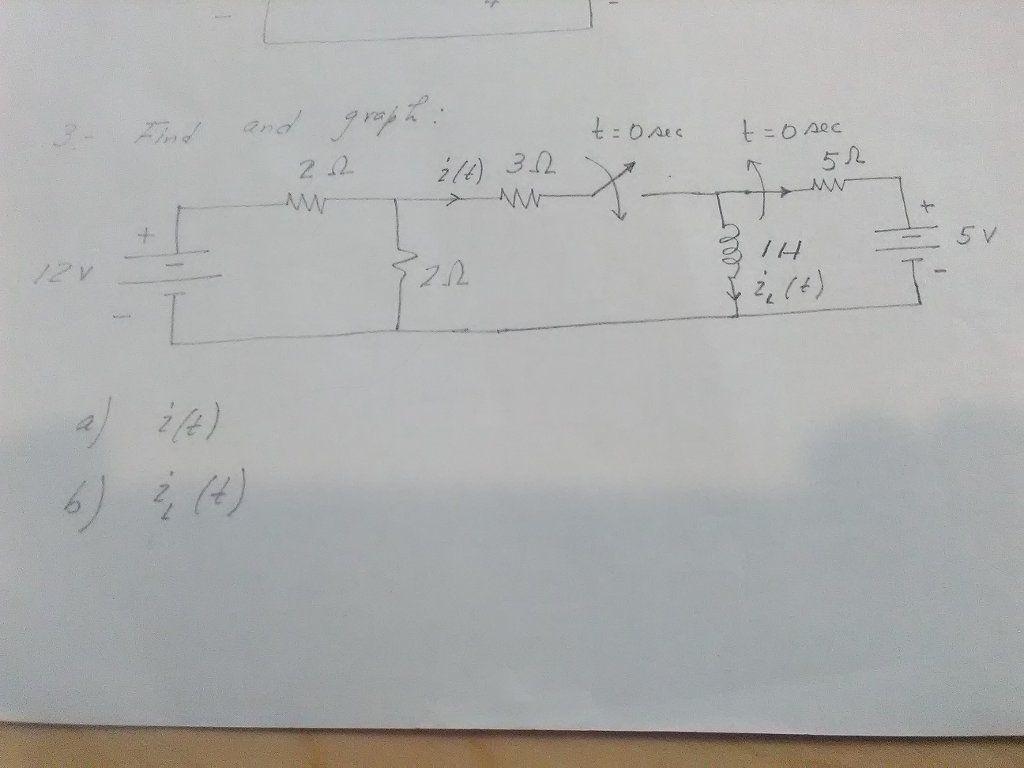 3.- Find and graph:
t = 0 sec t = 0 sec
2 Ω i(t) 3 Ω 5 Ω
+ +
12 V 2 Ω 1 H 5 V
i_L (t)
- -
a) i(t)
b) i_L (t)